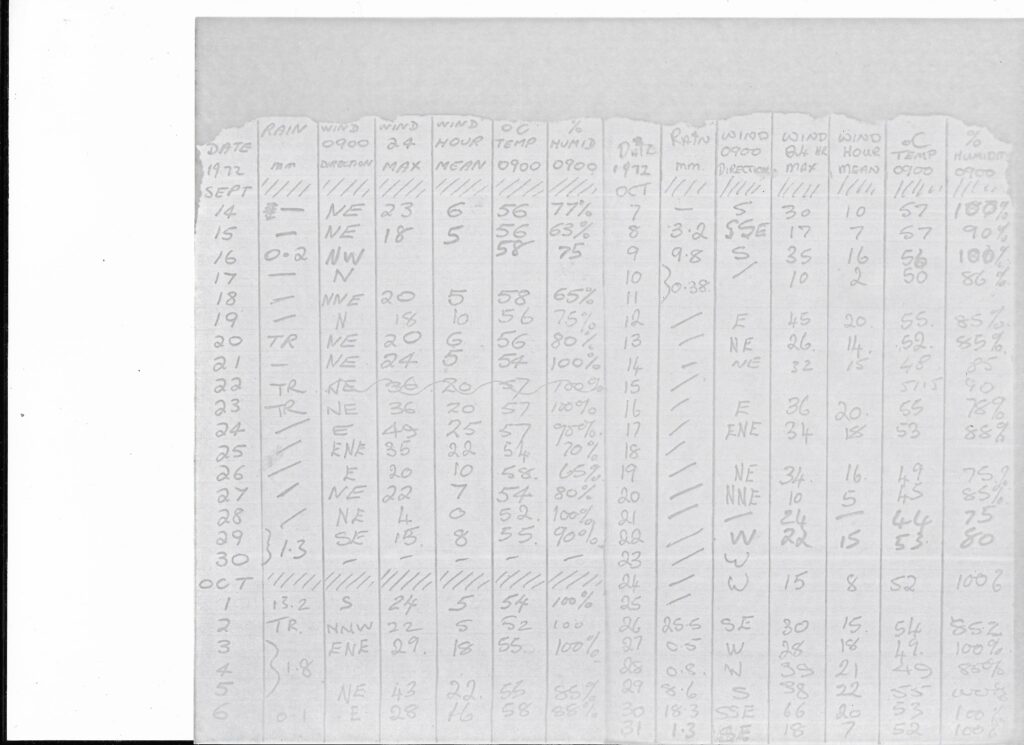 DATE 1972 | RAIN mm | WIND 0900 DIRECTION | WIND 24 MAX | WIND HOUR MEAN | °C TEMP 0900 | % HUMID 0900 | DATE 1972 | RAIN mm | WIND 0900 DIRECTION | WIND 24 HR MAX | WIND HOUR MEAN | °C TEMP 0900 | % HUMIDIT 0900
SEPT | OCT
14 — NE 23 6 56 77% | 7 — S 30 10 57 100%
15 — NE 18 5 56 63% | 8 3.2 SSE 17 7 57 90%
16 0.2 NW 58 75 | 9 9.8 S 35 16 56 100%
17 — N | 10 } 0.38 / 10 2 50 86%
18 — NNE 20 5 58 65% | 11
19 — N 18 10 56 75% | 12 / E 45 20. 55. 85%
20 TR NE 20 6 56 80% | 13 / NE 26. 14. 52. 85%
21 — NE 24 5 54 100% | 14 / NE 32 15 48 85
22 TR NE 36 20 57 100% | 15 / 51.5 90
23 TR NE 36 20 57 100% | 16 / E 36 20. 55 78%
24 / E 49 25 57 90% | 17 / ENE 34 18 53 88%
25 / ENE 35 22 54 70% | 18 /
26 / E 20 10 58. 65% | 19 / NE 34. 16. 49
27 / NE 22 7 54 80% | 20 / NNE 10 5 45 85%
28 / NE 4 0 52. 100% | 21 / — 24 — 44 75
29 } 1.3 SE 15 8 55. 90% | 22 / W 22 15 53. 80
30 — — — — — | 23 / W
OCT | 24 / W 15 8 52 100%
1 13.2 S 24 5 54 100% | 25 /
2 TR. NNW 22 5 52 100 | 26 25.5 SE 30 15. 54
3 } 1.8 ENE 29. 18 55. 100% | 27 0.5 W 28 18 49. 100%
4 | 28 0.8. W 39 21 49 85%
5 NE 43 22. 55 85% | 29 8.6 S 38 22 55 100%
6 0.1 E 28 16 58 88% | 30 18.3 SSE 66 20 53 100%
31 1.3 SE 18 7 52 100%